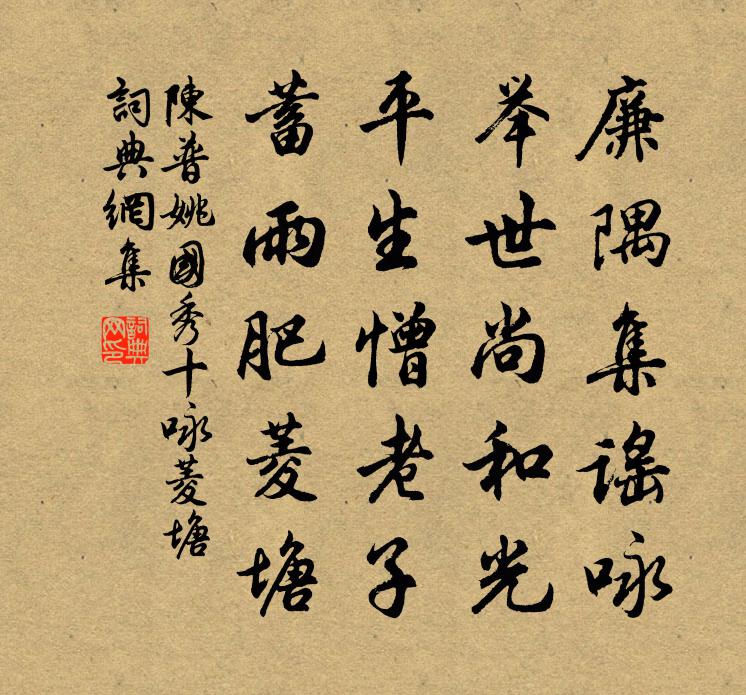 廉隅集謠咏
举世尚和光
平生憎老子
蓄雨肥菱塘
陳普姚國秀十咏菱塘
詞典網集
詞典网印